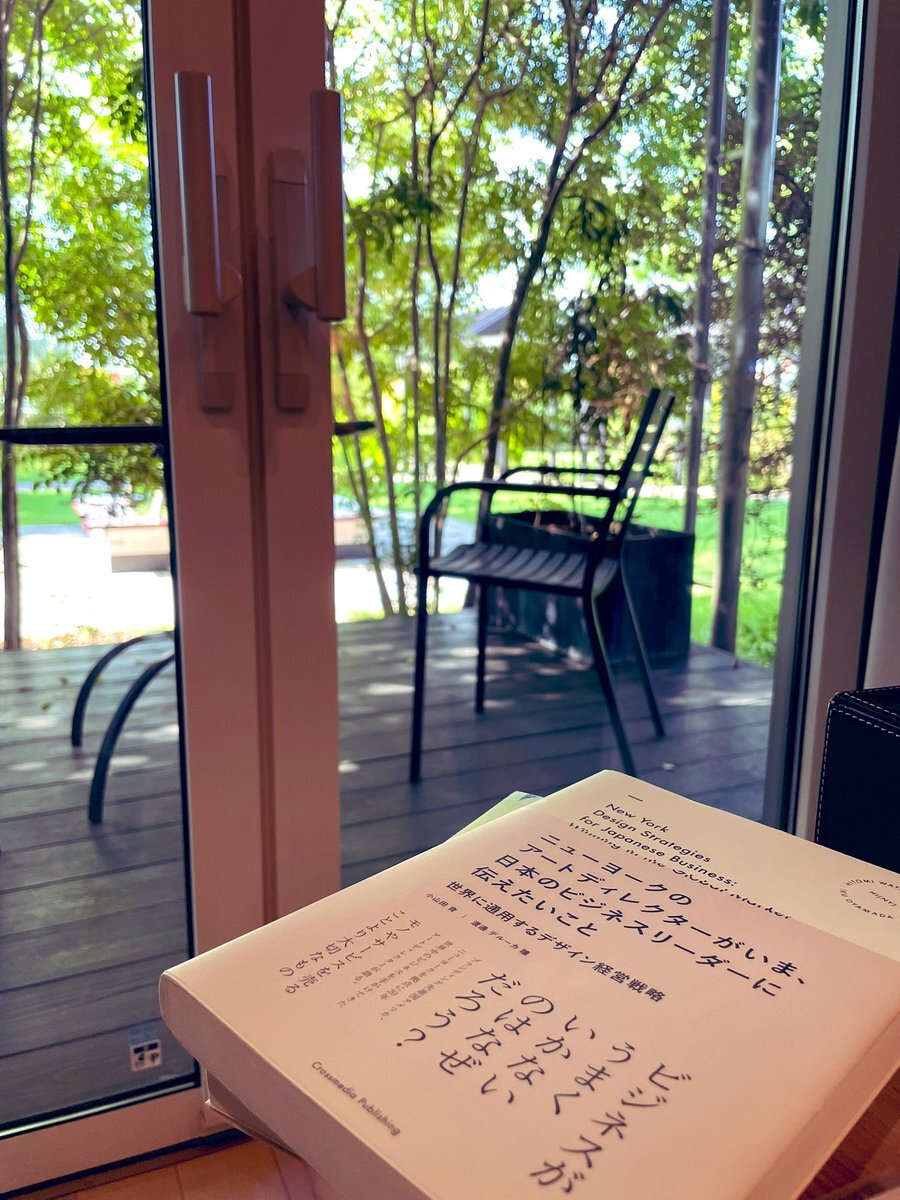 New York
Design Strategies
for Japanese Business:
ニューヨークの
アートディレクターがいま、
日本のビジネスリーダーに
伝えたいこと
世界に通用するデザイン経営戦略
小山田 育
渡邊 デルーカ 瞳
ビジネスが
うまく
いかない
のはなぜ
だろう?
モノやサービスを売る
ことより大切なもの
Crossmedia Publishing